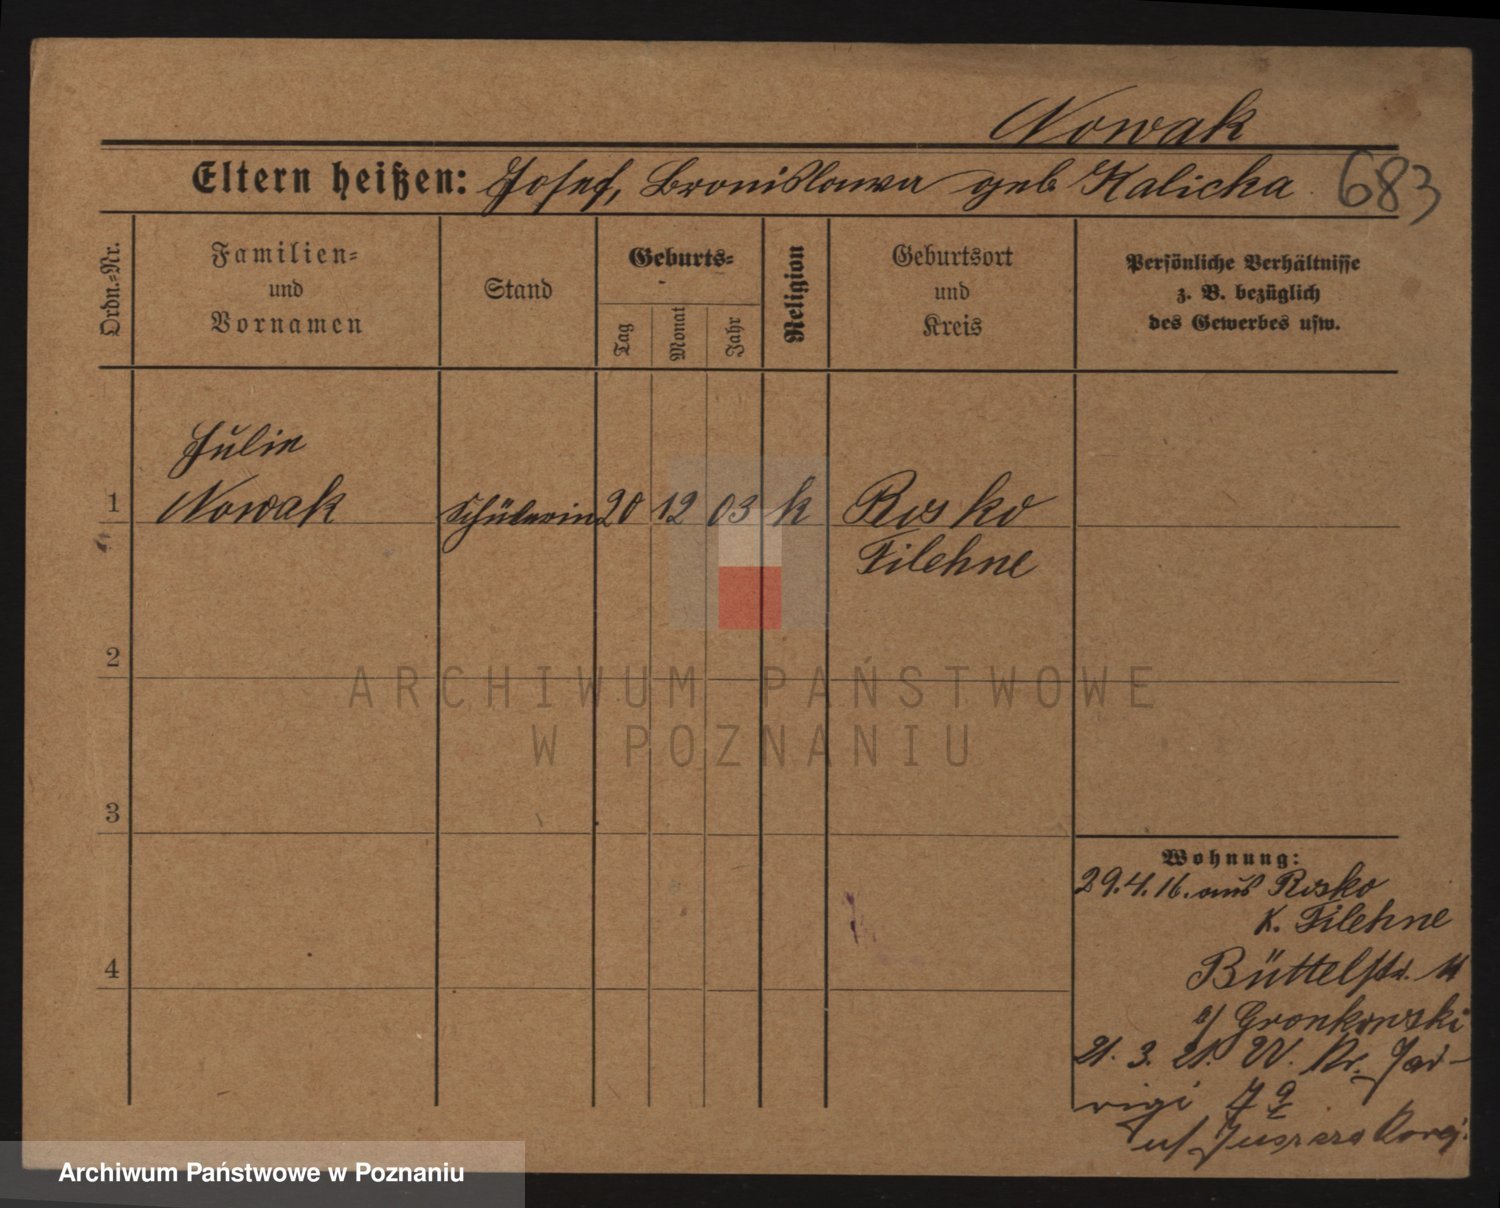 Nowak
Eltern heißen: Josef, Bronislawa geb Kalicka
683
Ordn.-Nr.
Familien-
und
Vornamen
Stand
Geburts-
Tag
Monat
Jahr
Religion
Geburtsort
und
Kreis
Persönliche Verhältnisse
z. B. bezüglich
des Gewerbes usw.
Julie
1 Nowak Schülerin 20 12 03 k Rosko
Filehne
2
3
4
ARCHIWUM PAŃSTWOWE
W POZNANIU
Wohnung:
29.4.16. aus Rosko
K. Filehne
Büttelstr.
b/ Gronkowski
21. 3. 21. W.
Archiwum Państwowe w Poznaniu